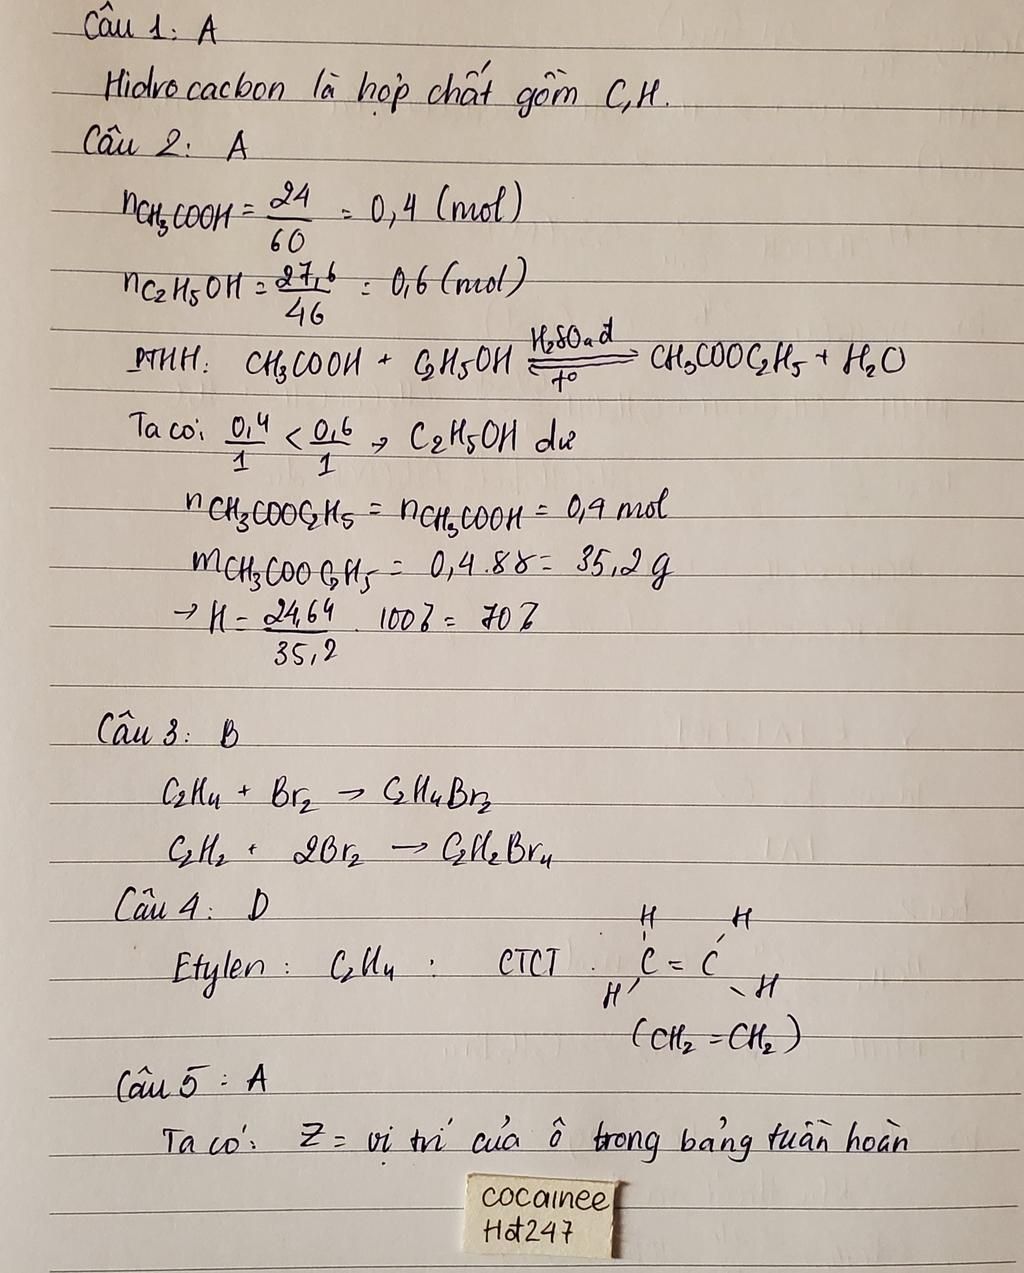 Câu 1: A
Hidrocacbon là hợp chất gồm C,H.
Câu 2: A
nCH₃COOH = 24/60 = 0,4 (mol)
nC₂H₅OH = 27,6/46 = 0,6 (mol)
PTHH: CH₃COOH + C₂H₅OH ⇌ CH₃COOC₂H₅ + H₂O (H₂SO₄ đ, t°)
Ta có: 0,4/1 < 0,6/1 → C₂H₅OH dư
nCH₃COOC₂H₅ = nCH₃COOH = 0,4 mol
mCH₃COOC₂H₅ = 0,4.88 = 35,2g
→ H = 24,64/35,2 . 100% = 70%
Câu 3: B
C₂H₄ + Br₂ → C₂H₄Br₂
C₂H₂ + 2Br₂ → C₂H₂Br₄
Câu 4: D
H H
Etylen: C₂H₄ : CTCT . C = C
H H
(CH₂ = CH₂)
Câu 5: A
Ta có: Z = vị trí của ô trong bảng tuần hoàn
cocainee
Hđ247